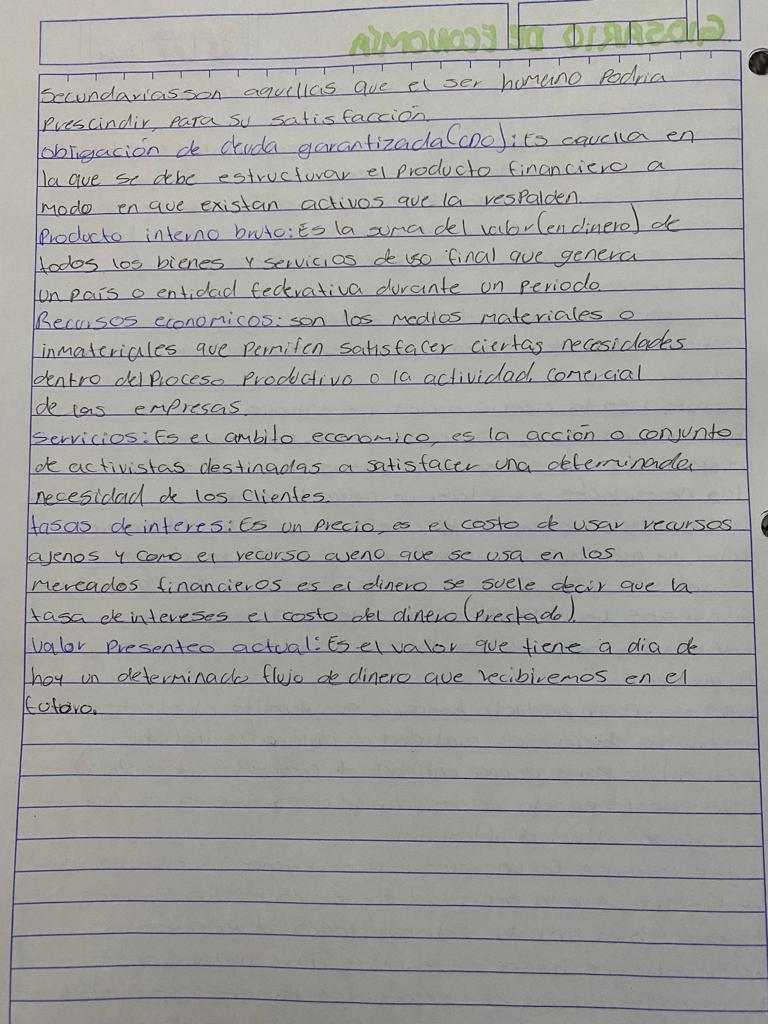 GLOSARIO DE ECONOMÍA
Secundarias son aquellas que el ser humano Podria
Prescindir, Para su satisfacción.
obligación de deuda garantizada (CDO): Es aquella en
la que se debe estructurar el Producto financiero a
modo en que existan activos que la respalden.
Producto interno bruto: Es la suma del valor (en dinero) de
todos los bienes y servicios de uso final que genera
un país o entidad federativa durante un periodo
Recursos economicos: son los medios materiales o
inmateriales que Permiten satisfacer ciertas necesidades
dentro del Proceso Productivo o la actividad comercial
de las empresas.
Servicios: Es el ambito economico, es la acción o conjunto
de activistas destinadas a satisfacer una determinada
necesidad de los clientes.
tasas de interes: Es un Precio, es el costo de usar recursos
ajenos y como el recurso ajeno que se usa en los
mercados financieros es el dinero se suele decir que la
tasa de intereses el costo del dinero (Prestado).
Valor Presenteo actual: Es el valor que tiene a dia de
hoy un determinado flujo de dinero que recibiremos en el
futuro.